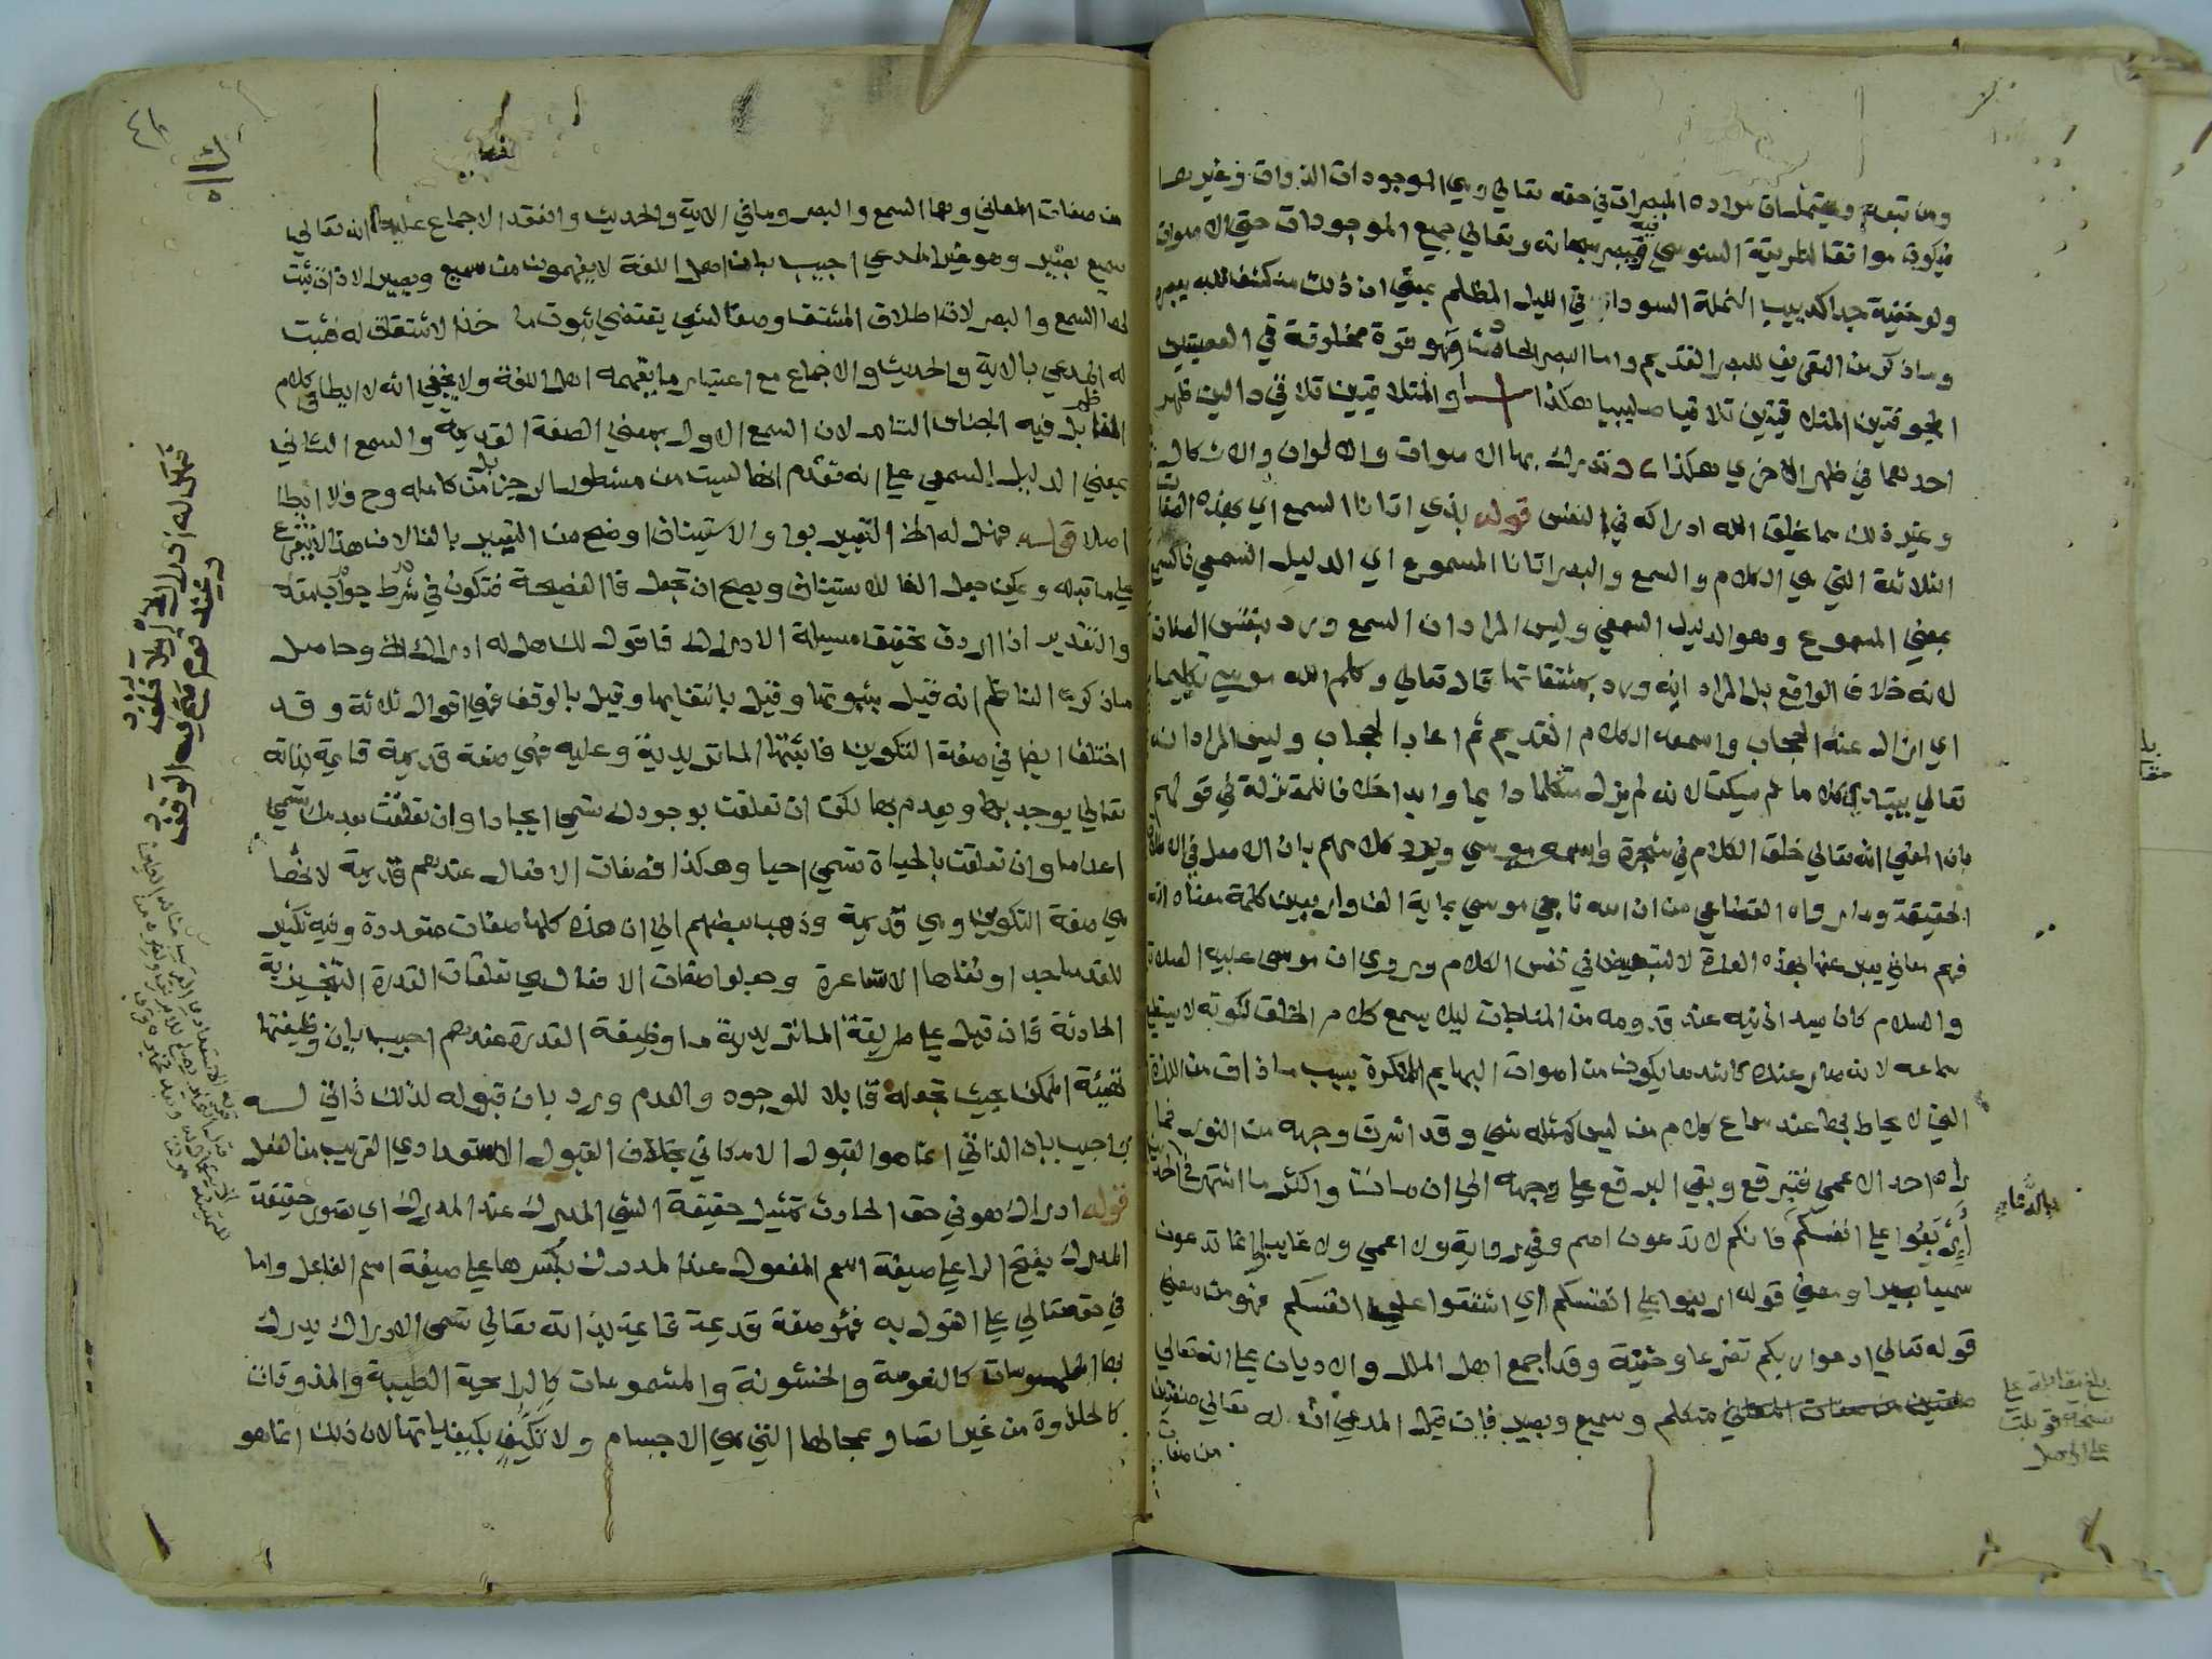 ومن تبعه ويحتمل ان مراده المبصرات في حقه تعالى وهي الموجودات الذوات وغيرها
فيكون موافقا لطريقة السنوسي فيه فيبصر سبحانه وتعالى جميع الموجودات حتى الاصوات
ولو خفية جدا كدبيب النملة السوداء في الليل المظلم بمعنى ان ذلك منكشف لله ببصره
وما ذكر من التعريف للبصر القديم واما البصر الحادث فهو قوة مخلوقة في العصبتين
المجوفتين المتلاقيتين تلاقيا صليبيا هكذا او المتلاقيتين تلاقي دالين ظهر
احدهما في ظهر الاخرى هكذا وتدرك بها الاصوات والالوان والاشكال
وغير ذلك مما يخلق الله ادراكه في النفس قوله بذي اتانا السمع اي بهذه الصفات
الثلاثة التي هي الكلام والسمع والبصر اتانا المسموع اي الدليل السمعي فالسمع
بمعنى المسموع وهو الدليل السمعي وليس المراد ان السمع ورد بنفس الصفات
لانه خلاف الواقع بل المراد انه ورد بمشتقاتها قال تعالى وكلم الله موسى تكليما
اي ازال عنه الحجاب واسمعه الكلام القديم ثم اعاد الحجاب وليس المراد انه
تعالى يبتدي كلاما ثم يسكت لانه لم يزل متكلما دايما وابدا خلافا للمعتزلة في قولهم
بان المعنى انه تعالى خلق الكلام في شجرة واسمعه موسى ويرد كلامهم بان الاصل في الاطلاق
الحقيقة وما رواه القضاعي من ان الله ناجى موسى بماية الف واربعين كلمة معناه انه
فهم معاني يعبر عنها بهذه العدة لا لتبعيض في نفس الكلام وروي ان موسى عليه الصلاة
والسلام كان يسد اذنيه عند قدومه من المناجات ليلا يسمع كلام الخلق لكونه لا يستطيع
سماعه لانه صار عنده كاشد ما يكون من اصوات البهايم المنكرة بسبب ما ذاق من اللذة
التي لا يحاط بها عند سماع كلام من ليس كمثله شي وقد اشرق وجهه من النور فما
راه احد الا عمي فتبرقع وبقي البرقع على وجهه الى ان مات واكثر ما اشتهر في الحديث
اربعوا على انفسكم فانكم لا تدعون اصم وفي رواية ولا اعمى ولا غايبا انما تدعون
سميعا بصيرا ومعنى قوله اربعوا على انفسكم اي اشفقوا على انفسكم فهو من معنى
قوله تعالى ادعوا ربكم تضرعا وخفية وقد اجمع اهل الملل والاديان على انه تعالى
صفتين من صفات المعاني متكلم وسميع وبصير فان قيل المدعى انه له تعالى صفتين
من صفات
بالدعاء
بلغ مقابلة على
نسخة قوبلت
على الاصل
من صفات المعاني وهما السمع والبصر وما في الاية والحديث وانعقد الاجماع عليه انه تعالى
سميع بصير وهو غير المدعى اجيب بان اهل اللغة لا يفهمون من سميع وبصير الا ذات ثبت
لها السمع والبصر لان اطلاق المشتق وصفا لشي يقتضي ثبوت ماخذ الاشتقاق له فثبت
له المدعى بالاية والحديث والاجماع مع اعتبار ما يفهمه اهل اللغة ولا يخفى انه لا ايطا في كلام
الناظم بل فيه الجناس التام لان السمع الاول بمعنى الصفة القديمة والسمع الثاني
بمعنى الدليل السمعي على انه تقدم انها ليست من مشطور الرجز بل من كامله وح فلا ايطا
اصلا قوله فهل له الخ التعبير بواو الاستيناف اوضح من التعبير بالفا لان هذا لا يتفرع
على ما قبله ويمكن جعل الفا للاستيناف ويصح ان تجعل فا الفصيحة فتكون في جواب شرط مقدر
والتقدير اذا اردت تحقيق مسيلة الادراك فاقول لك هل له ادراك الخ وحاصل
ما ذكره الناظم انه قيل بثبوتها وقيل بانتفايها وقيل بالوقف فهي اقوال ثلاثة وقد
اختلف ايضا في صفة التكوين فاثبتها الماتريدية وعليه فهي صفة قديمة قايمة بذاته
تعالى يوجد بها ويعدم بها لكن ان تعلقت بوجود تسمى ايجادا وان تعلقت بعدم تسمى
اعداما وان تعلقت بالحياة تسمى احيا وهكذا فصفات الافعال عندهم قديمة لانها
هي صفة التكوين وهي قديمة وذهب بعضهم الى ان هذه كلها صفات متعددة وفيه تكثير
للقدما جدا ونفاها الاشاعرة وجعلوا صفات الافعال هي تعلقات القدرة التنجيزية
الحادثة فان قيل على طريقة الماتريدية ما وظيفة القدرة عندهم اجيب بان وظيفتها
تهيئة الممكن بحيث تجعله قابلا للوجود والعدم ورد بان قبوله لذلك ذاتي له
واجيب بان الذاتي انما هو القبول الامكاني بخلاف القبول الاستعدادي القريب من الفعل
قوله ادراك هو في حق الحادث تمثيل حقيقة الشي المدرك عند المدرك اي تصور حقيقة
المدرك بفتح الرا على صيغة اسم المفعول عند المدرك بكسرها على صيغة اسم الفاعل واما
في حقه تعالى على القول به فهو صفة قديمة قايمة بذاته تعالى تسمى الادراك يدرك
بها الملموسات كالنعومة والخشونة والمشمومات كالرايحة الطيبة والمذوقات
كالحلاوة من غير اتصال بمحالها التي هي الاجسام ولا تكيف بكيفياتها لان ذلك انما هو
فهل له ادراك او لا خلف
وعند قوم صح فيه الوقف